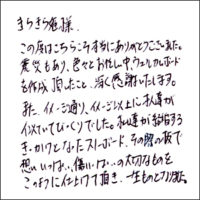 きらきら屋様
この度はこちらこそ本当にありがとうございました。
震災もあり、色々とお忙しい中、ウェルカムボード
を作成頂けたこと、深く感謝いたします。
また、イメージ通り、イメージ以上に私達が
似ていてびっくりでした。私達が結婚する
きっかけとなったスノーボード、その
想いいっぱい、傷いっぱいの大切なものを
このように仕上げて頂き、一生ものとなりました。